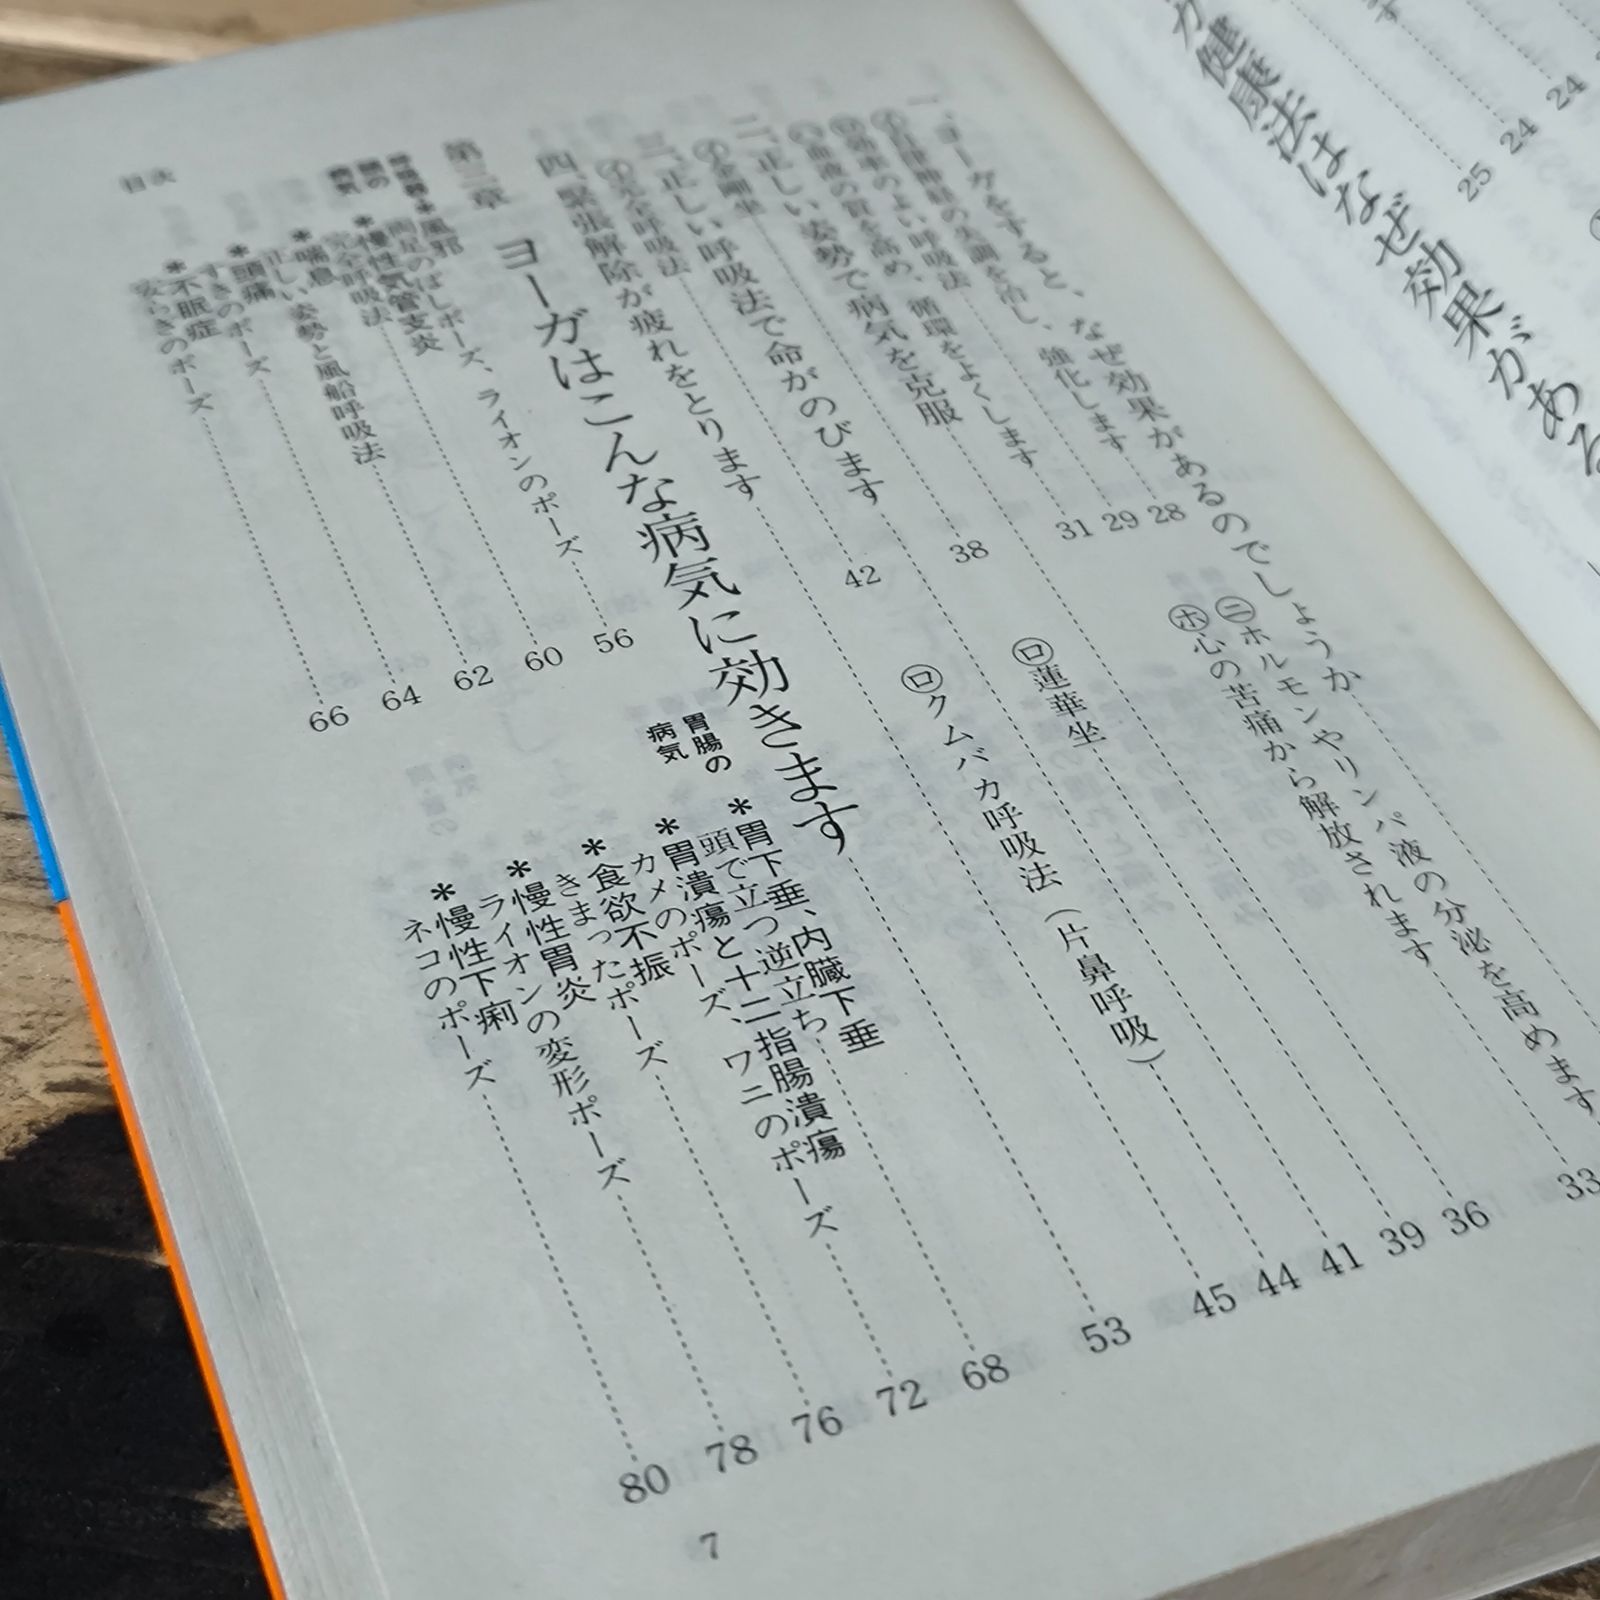 24
24
25
ガ健康法はなぜ効果がある
一、ヨーガをすると、なぜ効果があるのでしょうか
28
の失調を治し、強化します
29
㋺効率のよい呼吸法
31
㋩血液の質を高め、循環をよくします
㊁ホルモンやリンパ液の分泌を高めます
33
㋭心の苦痛から解放されます
36
二、正しい姿勢で病気を克服
38
㋑金剛坐
㋺蓮華坐
39
41
三、正しい呼吸法で命がのびます
42
㋑完全呼吸法
㋺クムバカ呼吸法（片鼻呼吸）
44
45
四、緊張解除が疲れをとります
53
第三章 ヨーガはこんな病気に効きます
病気
*風邪
両足のばしポーズ、ライオンのポーズ 56
*慢性気管支炎
完全呼吸法 60
*喘息
正しい姿勢と風船呼吸法 62
*頭痛
すきのポーズ 64
*不眠症
安らぎのポーズ 66
胃腸の
病気
*胃下垂、内臓下垂
頭で立つ逆立ち 68
*胃潰瘍と十二指腸潰瘍
カメのポーズ、ワニのポーズ 72
*食欲不振
きまったポーズ 76
*慢性胃炎
ライオンの変形ポーズ 78
*慢性下痢
ネコのポーズ 80
目次
7